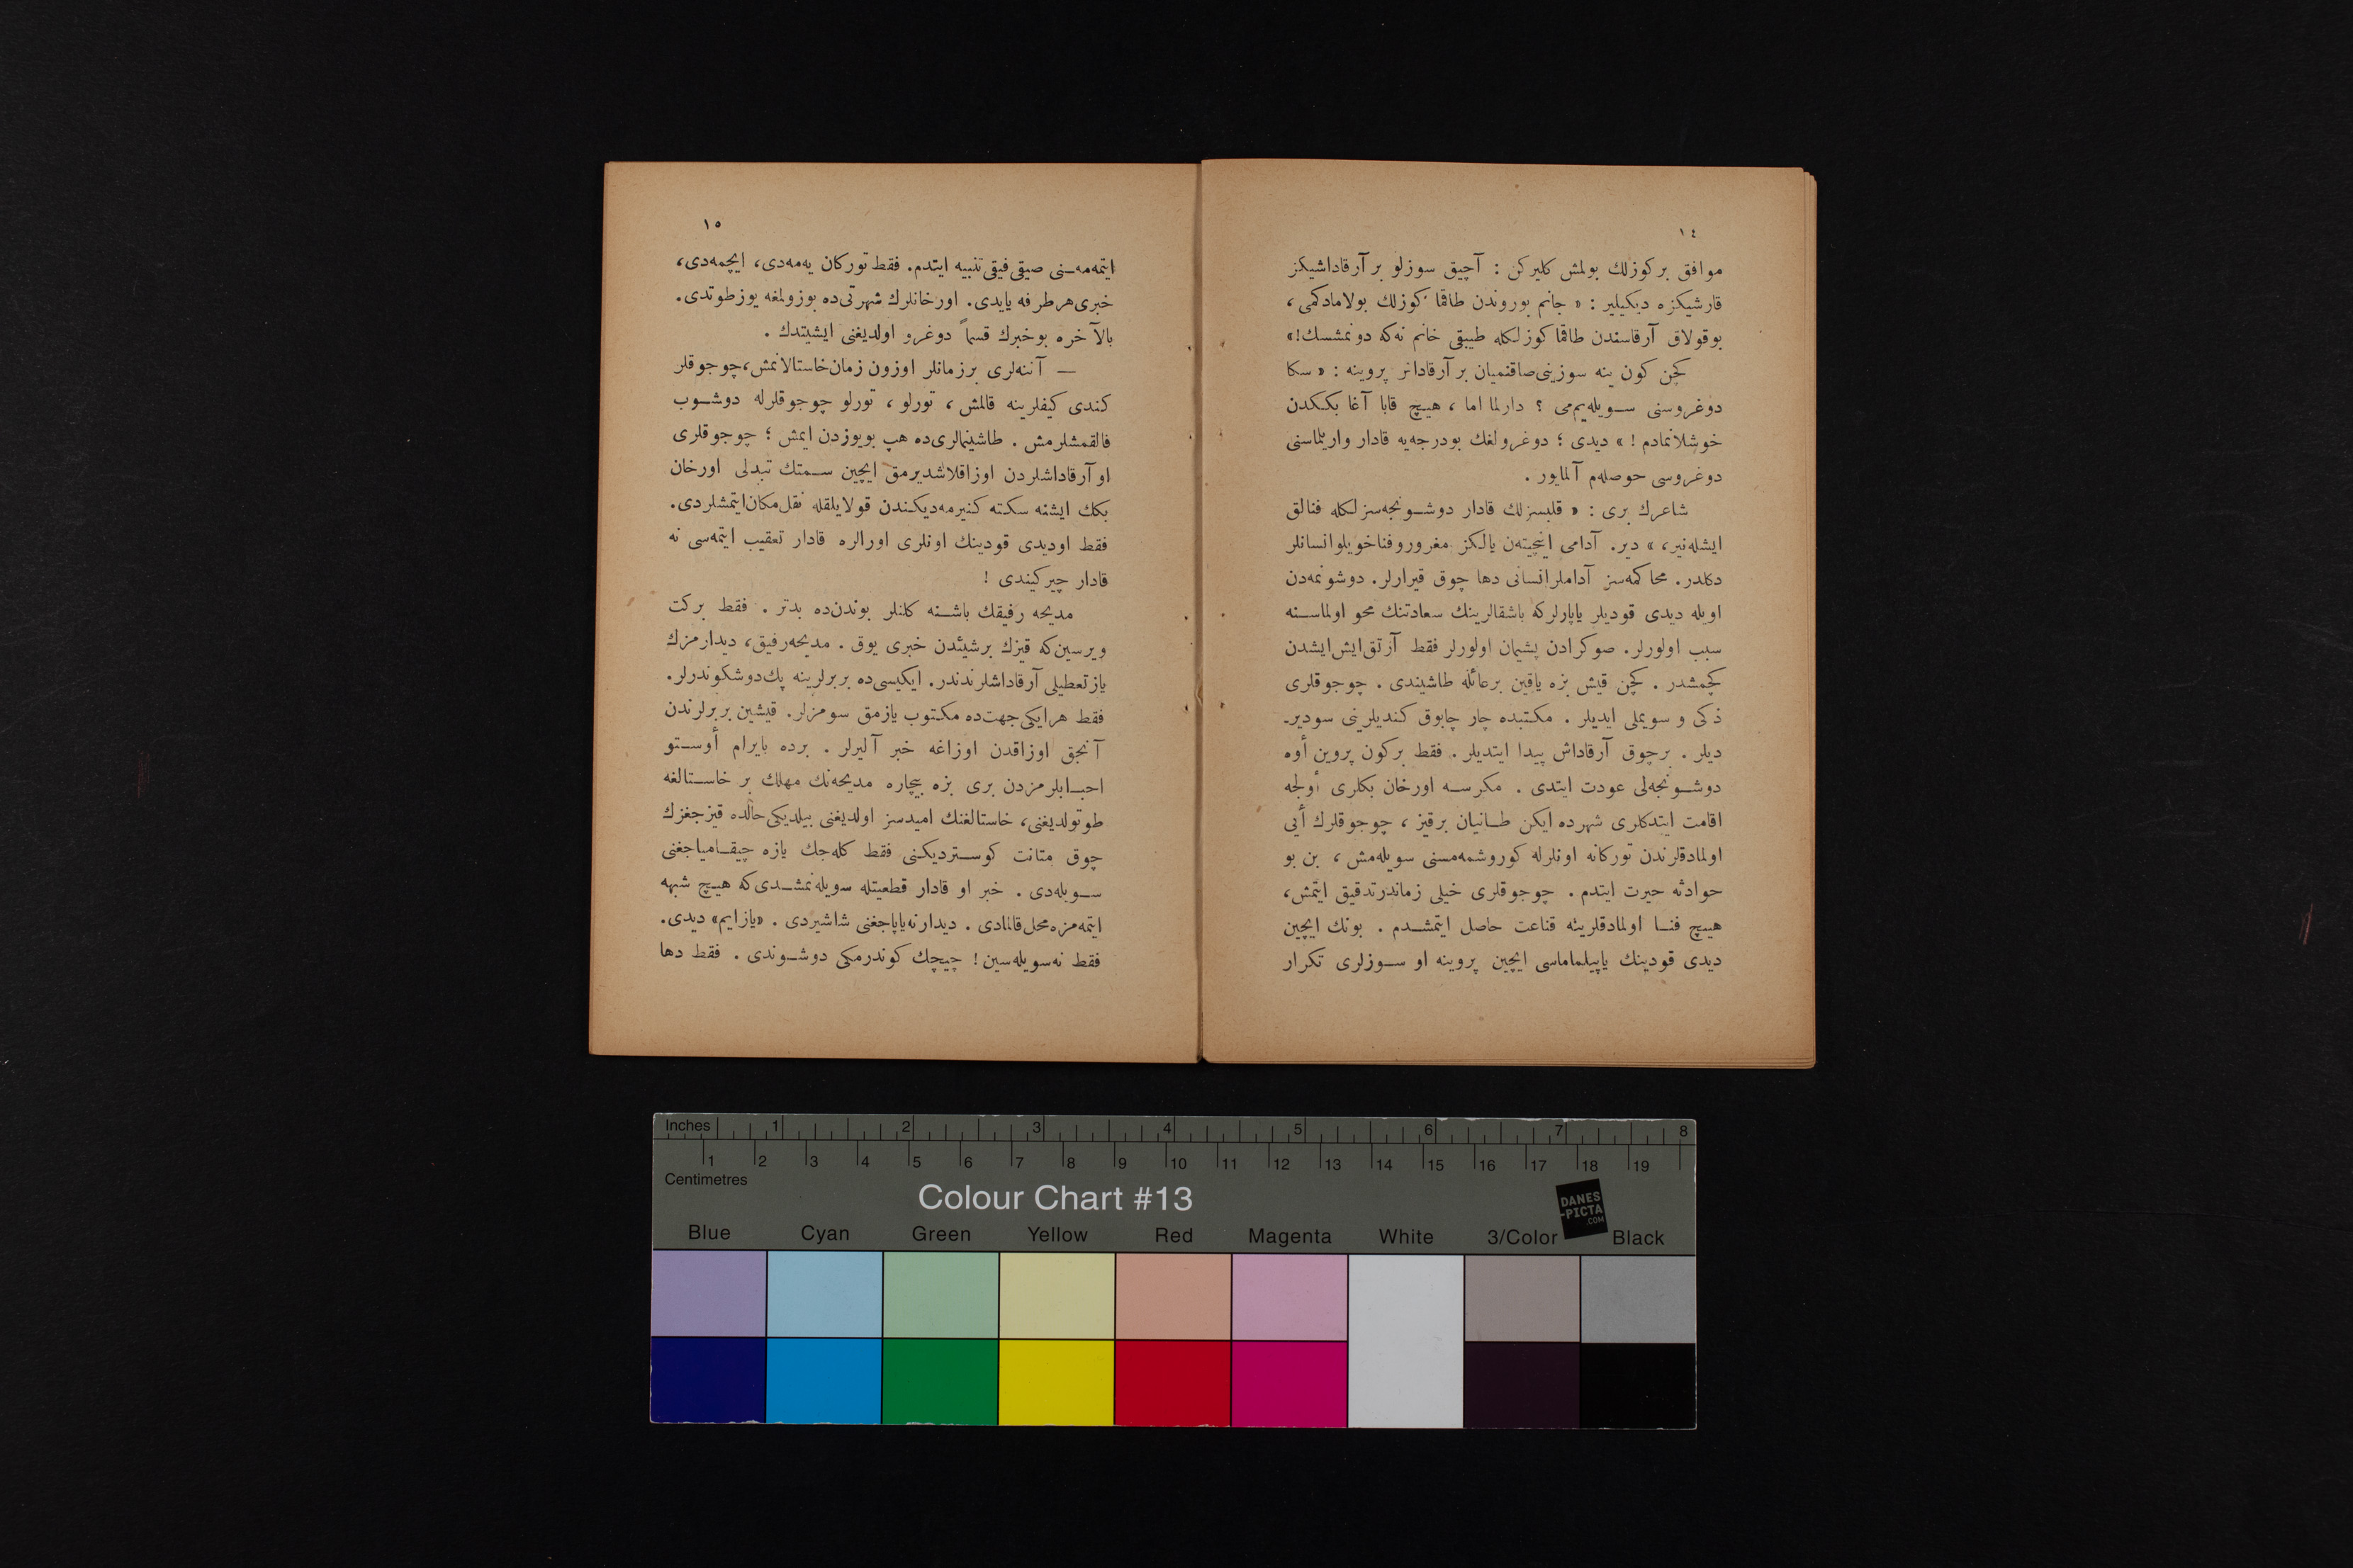 ١٤
موافق بر كوزلك بولمش كليركن : آچيق سوزلو بر آرقاداشيكز
قارشيكزه ديكيلير : « جانم بوروندن طاقما كوزلك بولامادكمى ،
بو قولاق آرقاسندن طاقما كوزلكله طيبقى خانم نه‌كه دونمشسك!»
كچن كون ينه سوزينى صاقنميان بر آرقاداش پروينه : « سكا
دوغروسنى سـويله‌يم‌مى ؟ دارلما اما ، هيـچ قابا آغا بككدن
خوشلانمادم ! » ديدى ؛ دوغرولغك بودرجه‌يه قادار واريلماسنى
دوغروسى حوصله‌م آلمايور .
شاعرك برى : « قلبسزلك قادار دوشـونجه‌سزلكله فنالق
ايشله‌نير، » دير. آدامى اينجيته‌ن يالكز مغرور و فنا خويلو انسانلر
دكلدر. محاكمه‌سز آداملر انسانى دها چوق قيرارلر. دوشونمه‌دن
اويله ديدى قوديلر ياپارلركه باشقالرينك سعادتنك محو اولماسـنه
سبب اولورلر. صوكرادن پشيمان اولورلر فقط آرتق ايش ايشدن
كچمشدر . كچن قيش بزه ياقين برعائله طاشيندى . چوجوقلرى
ذكى و سويملى ايديلر . مكتبده چار چابوق كنديلرينى سوديرـ
ديلر . برچوق آرقاداش پيدا ايتديلر . فقط بركون پروين أوه
دوشـونجه‌لى عودت ايتدى . مكرسـه اورخان بكلرى أولجه
اقامت ايتدكلرى شهرده ايكن طـانيان برقيز ، چوجوقلرك أيى
اولمادقلرندن توركانه اونلرله كوروشمه‌مسنى سويله‌مش ، بن بو
حوادثه حيرت ايتدم . چوجوقلرى خيلى زماندر تدقيق ايتمش،
هيـچ فنـا اولمادقلرينه قناعت حاصل ايتمشـدم . بونك ايچين
ديدى قودينك ياپيلماماسى ايچين پروينه او سـوزلرى تكرار
١٥
ايتمه‌مه‌ـنى صيقى فيقى تنبيه ايتدم. فقط توركان يه‌مه‌دى، ايچمه‌دى،
خبرى هر طرفه يايدى. اورخانلرك شهرتى‌ده بوزولمغه يوز طوتدى.
بالآخره بو خبرك قسماً دوغرو اولديغنى ايشيتدك .
— آننه‌لرى بر زمانلر اوزون زمان خاستالانمش، چوجوقلر
كندى كيفلرينه قالمش ، تورلو ، تورلو چوجوقلرله دوشـوب
قالقمشلرمش . طاشينمالرى‌ده هپ بو يوزدن ايمش ؛ چوجوقلرى
او آرقاداشلردن اوزاقلاشديرمق ايچين سـمتك تبدلى اورخان
بكك ايشنه سكته كتيرمه‌ديكندن قولايلقله نقل مكان ايتمشلردى.
فقط او ديدى قودينك اونلرى اورالره قادار تعقيب ايتمه‌سى نه
قادار چيركيندى !
مديحه رفيقك باشـنه كلنلر بوندن‌ده بدتر . فقط بركت
ويرسين‌كه قيزك برشيئدن خبرى يوق . مديحه رفيق، ديدارمزك
ياز تعطيلى آرقاداشلرندندر. ايكيسى‌ده بربرلرينه پك دوشكوندرلر.
فقط هر ايكى جهت‌ده مكتوب يازمق سومزلر. قيشين بربرلرندن
آنجق اوزاقدن اوزاغه خبر آليرلر . برده بايرام أوسـتو
احبـابلرمزدن برى بزه بيچاره مديحه‌نك مهلك بر خاسـتالغه
طوتولديغنى، خاستالغنك اميدسز اولديغنى بيلديكى حالده قيزجغزك
چوق متانت كوسـترديكنى فقط كله‌جك يازه چيقـامياجغنى
سـويله‌دى . خبر او قادار قطعيتله سويله‌نمشـدى‌كه هيـچ شبهه
ايتمه‌مزه محل قالمادى . ديدار نه ياپاجغنى شاشيردى . «يازايم» ديدى.
فقط نه سويله‌سين! چيچك كوندرمكى دوشـوندى . فقط دها
Inches 1 2 3 4 5 6 7 8
1 2 3 4 5 6 7 8 9 10 11 12 13 14 15 16 17 18 19
Centimetres
Colour Chart #13
DANES
-PICTA
.COM
Blue Cyan Green Yellow Red Magenta White 3/Color Black